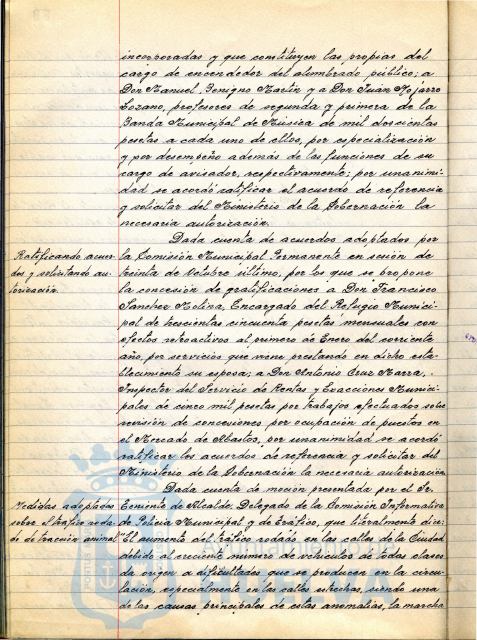 incorporadas y que constituyen las propias del
cargo de encendedor del alumbrado público; a
Don Manuel Benigno Martín y a Don Juan Pojarro
Lozano, profesores de segunda y primera de la
Banda Municipal de Música de mil doscientas
pesetas a cada uno de ellos, por especialización
y por desempeño además de las funciones de su
cargo de avisador, respectivamente; por unanimi-
dad se acordó ratificar el acuerdo de referencia
y solicitar del Ministerio de la Gobernación la
necesaria autorización.
Dada cuenta de acuerdos adoptados por
Ratificando acuer-
dos y solicitando au-
torización.
la Comisión Municipal Permanente en sesión de
treinta de Octubre último, por los que se propone
la concesión de gratificaciones a Don Francisco
Sanchez Molina, Encargado del Refugio Munici-
pal de trescientas cincuenta pesetas mensuales con
efectos retroactivos al primero de Enero del corriente
año, por servicios que viene prestando en dicho esta-
blecimiento su esposa; a Don Antonio Cruz Marra,
Inspector del Servicio de Rentas y Exacciones Munici-
pales de cinco mil pesetas por trabajos efectuados sobre
revisión de concesiones por ocupación de puestos en
el Mercado de Abastos, por unanimidad se acordó
ratificar los acuerdos de referencia y solicitar del
Ministerio de la Gobernación la necesaria autorización.
Dada cuenta de moción presentada por el Sr.
Medidas adoptadas
sobre tráfico roda-
do de tracción animal
Teniente de Alcalde Delegado de la Comisión Informativa
de Policía Municipal y de Tráfico, que literalmente dice:
"El aumento del tráfico rodado en las calles de la Ciudad
debido al creciente número de vehículos de todas clases
da origen a dificultades que se producen en la circu-
lación, especialmente en las calles estrechas, siendo una
de las causas principales de estas anomalías, la marcha